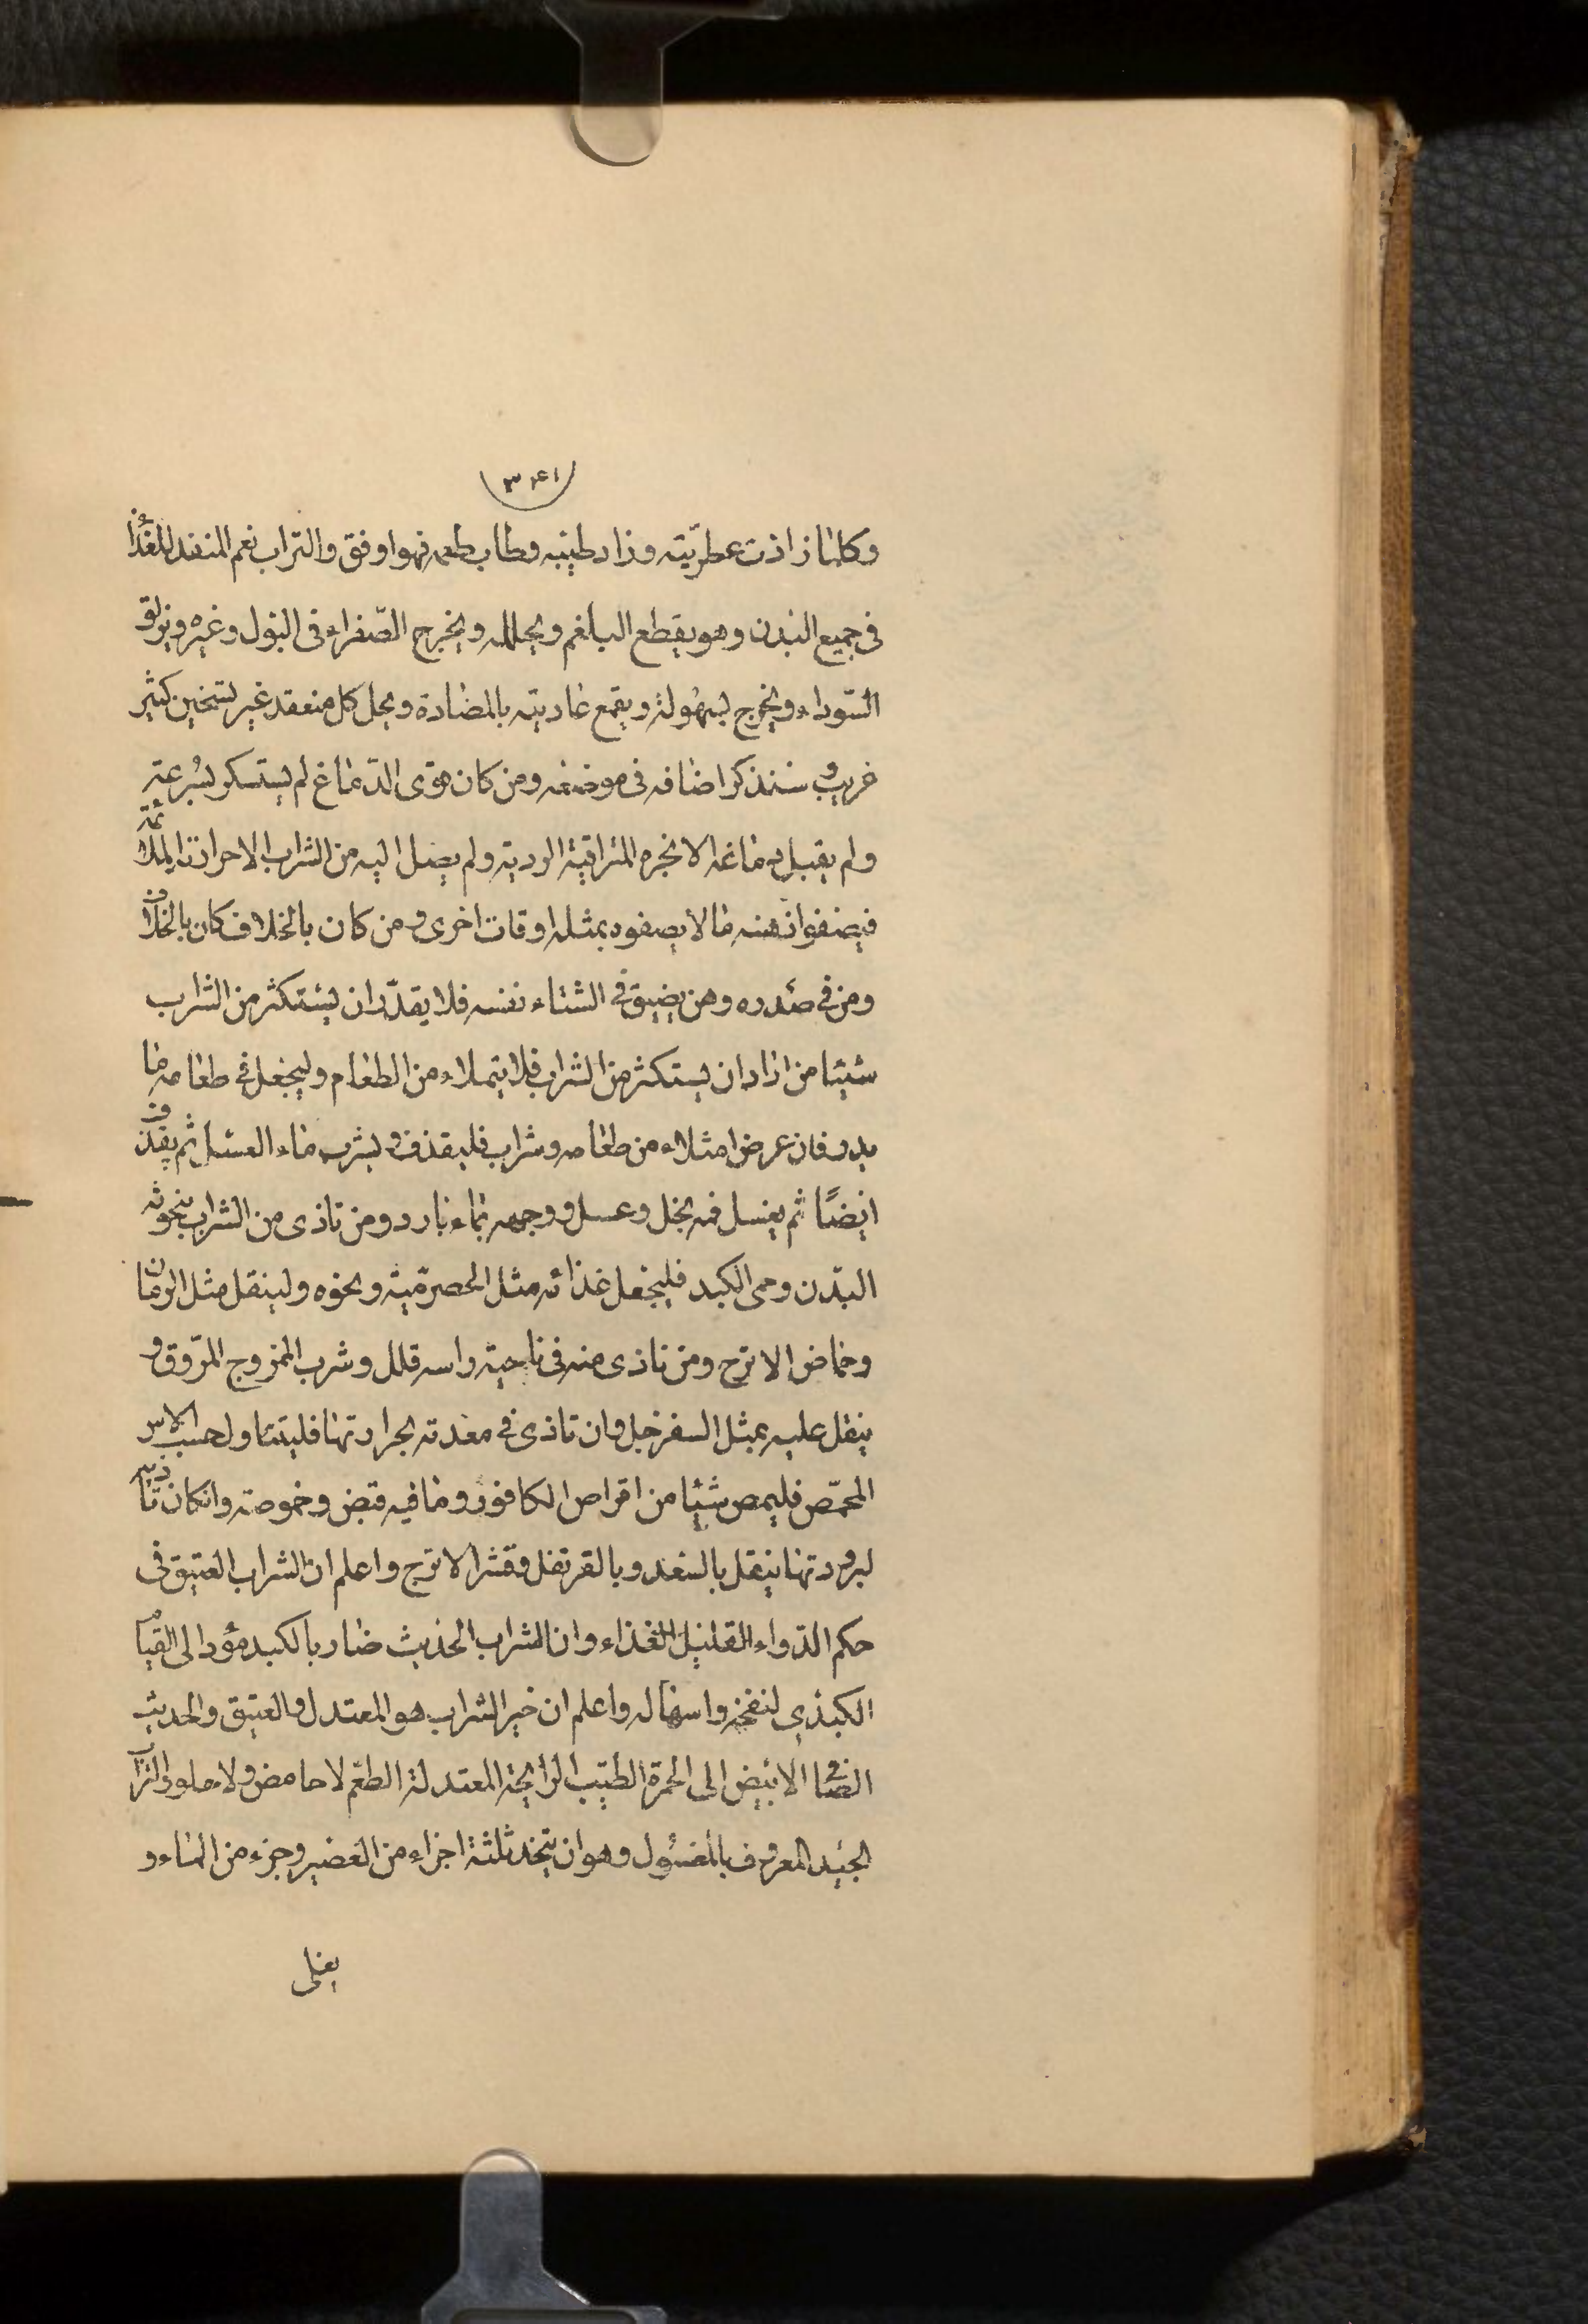 ٣٤١
وكلما زادت عطريّته وزاد طيبه وطاب طعمه فهو اوفق والشراب نعم المنفذ للغذا
فى جميع البدن وهو يقطع البلغم ويحلله ويخرج الصّفراء فى البول وغيره ويزلق
السّوداء ويخرج بسهولة ويقمع عاديته بالمضادة ويحل كل منعقد غير تسخين كثير
غريب وسنذكر اضافه فى موضعه ومن كان قوى الدّماغ لم يستسكر بسُرعته
ولم يقبل دماغه الابخره المتراقية الرديه ولم يصل اليه من الشراب الاحرارته الملائمة
فيصفوا ذهنه ما لا يصفوه بمثله اوقات اخرى ومن كان بالخلاف كان بالخلاف
ومن فى صدره وهن يضيق فى الشتاء نفسه فلا يقدّر ان يستكثر من الشراب
شيئا من اراد ان يستكثر من الشراب فلا يتملاء من الطعام وليجعل فى طعامه ما
يدر فان عرض امتلاء من طعام وشراب فليقذف وليشرب ماء العسل ثم يقذف
ايضًا ثم يغسل فمه بخل وعسل ووجهه بماء بارد ومن تاذى من الشراب بنحوته
البّدن وحمى الكبد فليجعل غذائه مثل الحصرميّه ونحوه ولينقل مثل الرمان
وحماض الاترج ومن تاذى منه فى ناحيته راسه قلل وشرب الممزوج المرّوق و
ينقل عليه بمثل السفرجل وان تاذى فى معدته بحرارتها فليتناول حسب الاس
المحمّص فليمص شيئا من اقراص الكافور وما فيه قبض وحموصته وانكان تاذيه
لبرودتها ينقل بالسعد وبالقرنفل وقشر الاترج واعلم ان الشراب العتيق فى
حكم الدّواء القليل الغذاء وان الشراب الحديث ضار بالكبد مؤد الى القيام
الكبدي لنفخه واسهاله واعلم ان خير الشراب هو المعتدل والعتيق والحديث
الصافى الابيض الى الحمرة الطيّب الرائحة المعتدلة الطعم لا حامض ولا حلو والشراب
الجيّد المعروف بالمغسُول وهو ان يتخذ ثلثة اجزاء من العصير وجزء من الماء و
يغلى